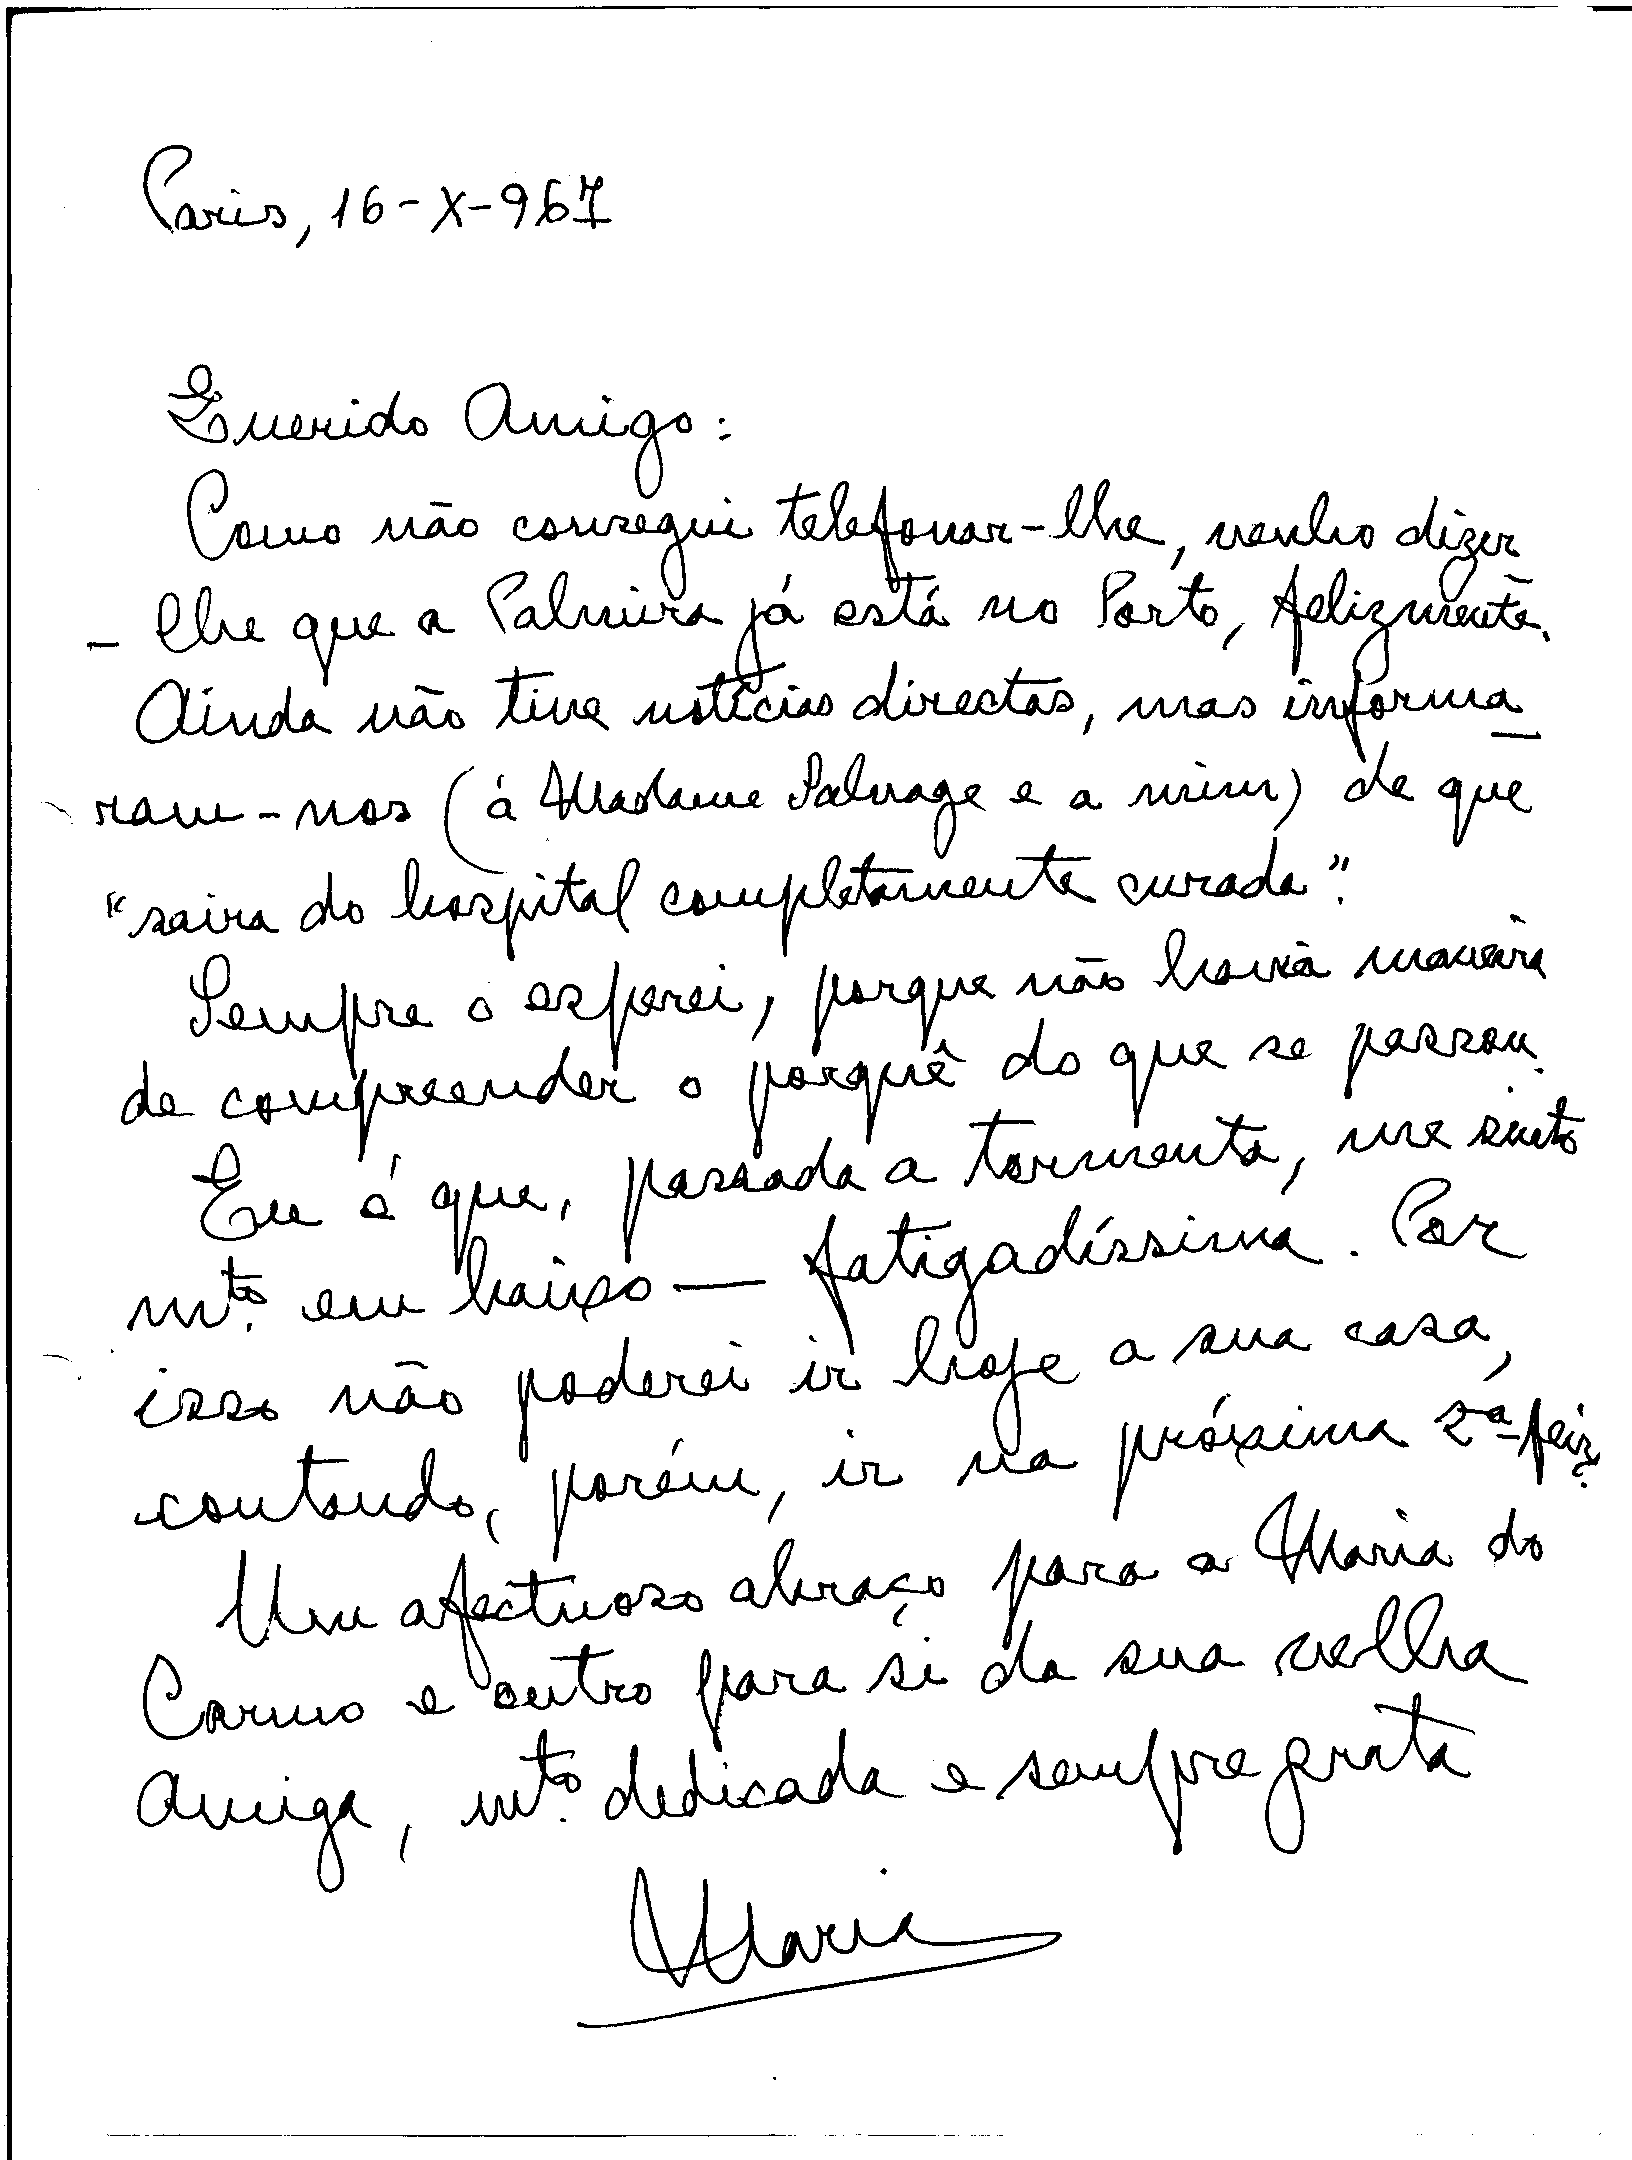 Paris, 16-X-967
Querido Amigo:
Como não consegui telefonar-lhe, venho dizer
- lhe que a Palmira já está no Porto, felizmente.
Ainda não tive notícias directas, mas informa_
ram-nos (à Madame Salvage e a mim) de que
"saira do hospital completamente curada".
Sempre o esperei, porque não havia maneira
de compreender o porquê do que se passou.
Eu é que, passada a tormenta, me sinto
mto. em baixo — fatigadíssima. Por
isso não poderei ir hoje a sua casa,
contando, porém, ir na próxima 2ª-feira.
Um afectuoso abraço para a Maria do
Carmo e outro para si da sua velha
Amiga, mto. dedicada e sempre grata
Maria